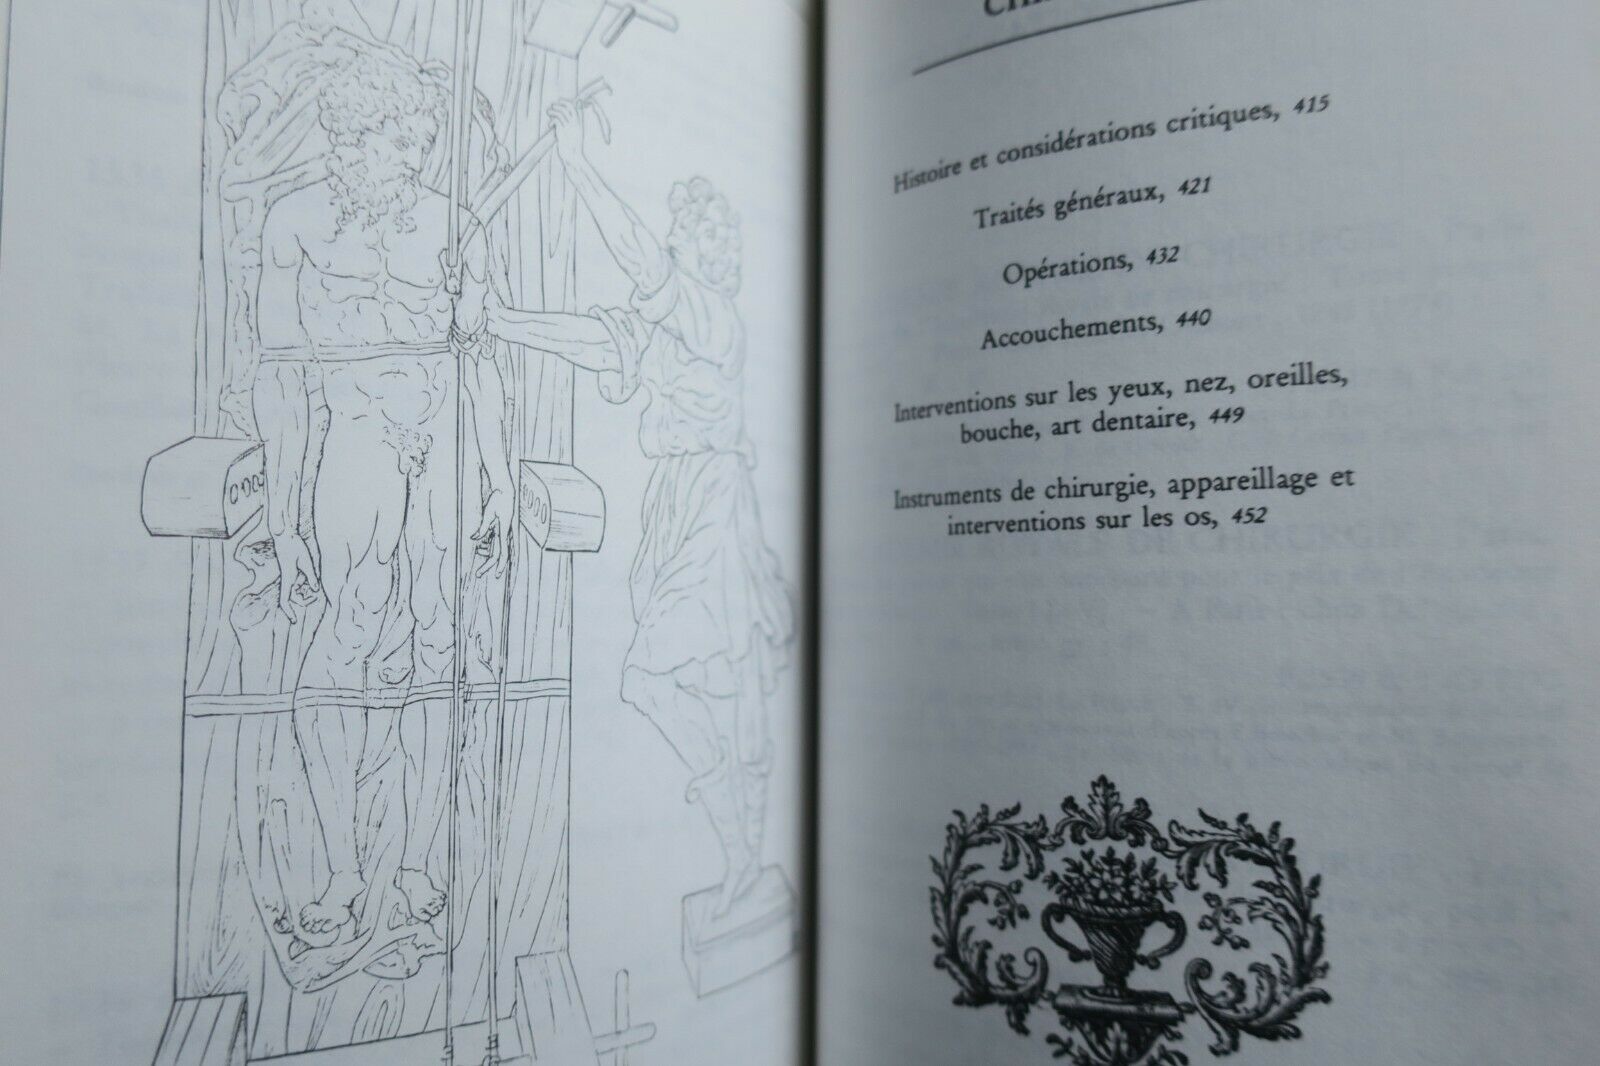 Histoire et considérations critiques, 415
Traités généraux, 421
Opérations, 432
Accouchements, 440
Interventions sur les yeux, nez, oreilles,
bouche, art dentaire, 449
Instruments de chirurgie, appareillage et
interventions sur les os, 452